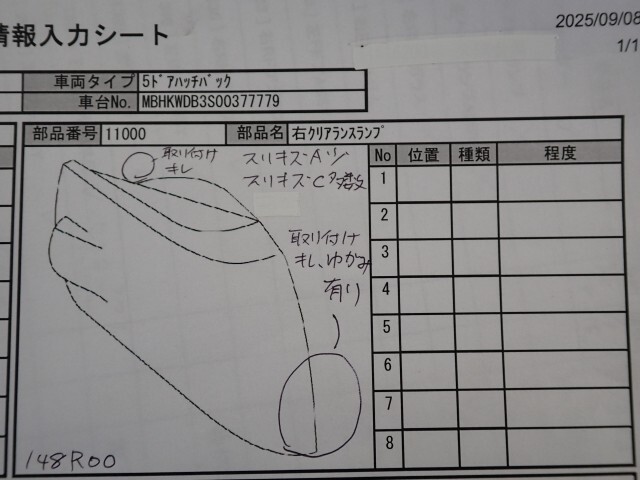 情報入力シート
2025/09/08
1/1
車両タイプ 5ﾄﾞｱﾊｯﾁﾊﾞｯｸ
車台No. MBHKWDB3S00377779
部品番号 11000 部品名 右ｸﾘｱﾗﾝｽﾗﾝﾌﾟ
No 位置 種類 程度
1
2
3
4
5
6
7
8
取り付け
キレ
スリキズ-A少
スリキズ-C多数
取り付け
キレ、ゆがみ
有り
148R00